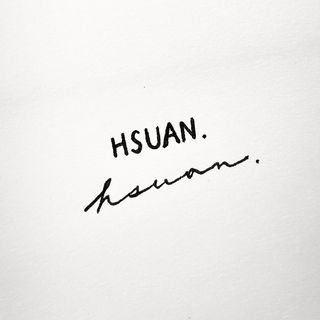 HSUAN.
hsuan.